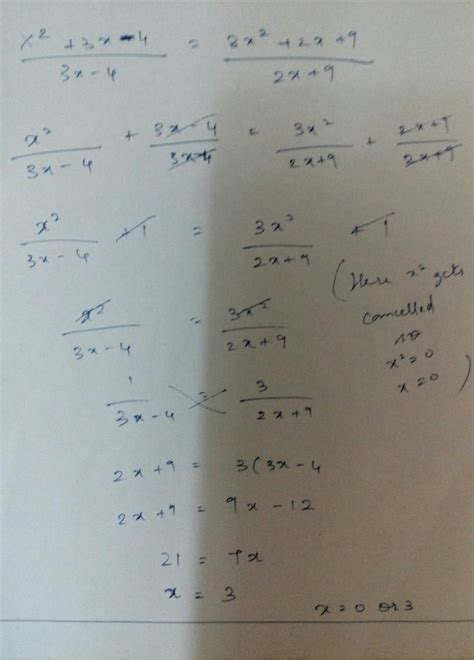 x² + 3x - 4 / 3x - 4 = 3x² + 2x + 9 / 2x + 9
x² / 3x - 4 + 3x - 4 / 3x - 4 = 3x² / 2x + 9 + 2x + 9 / 2x + 9
x² / 3x - 4 + 1 = 3x² / 2x + 9 + 1
(Here x² gets
cancelled
so
x² = 0
x = 0)
x² / 3x - 4 = 3x² / 2x + 9
1 / 3x - 4 = 3 / 2x + 9
2x + 9 = 3(3x - 4
2x + 9 = 9x - 12
21 = 7x
x = 3
x = 0 or 3